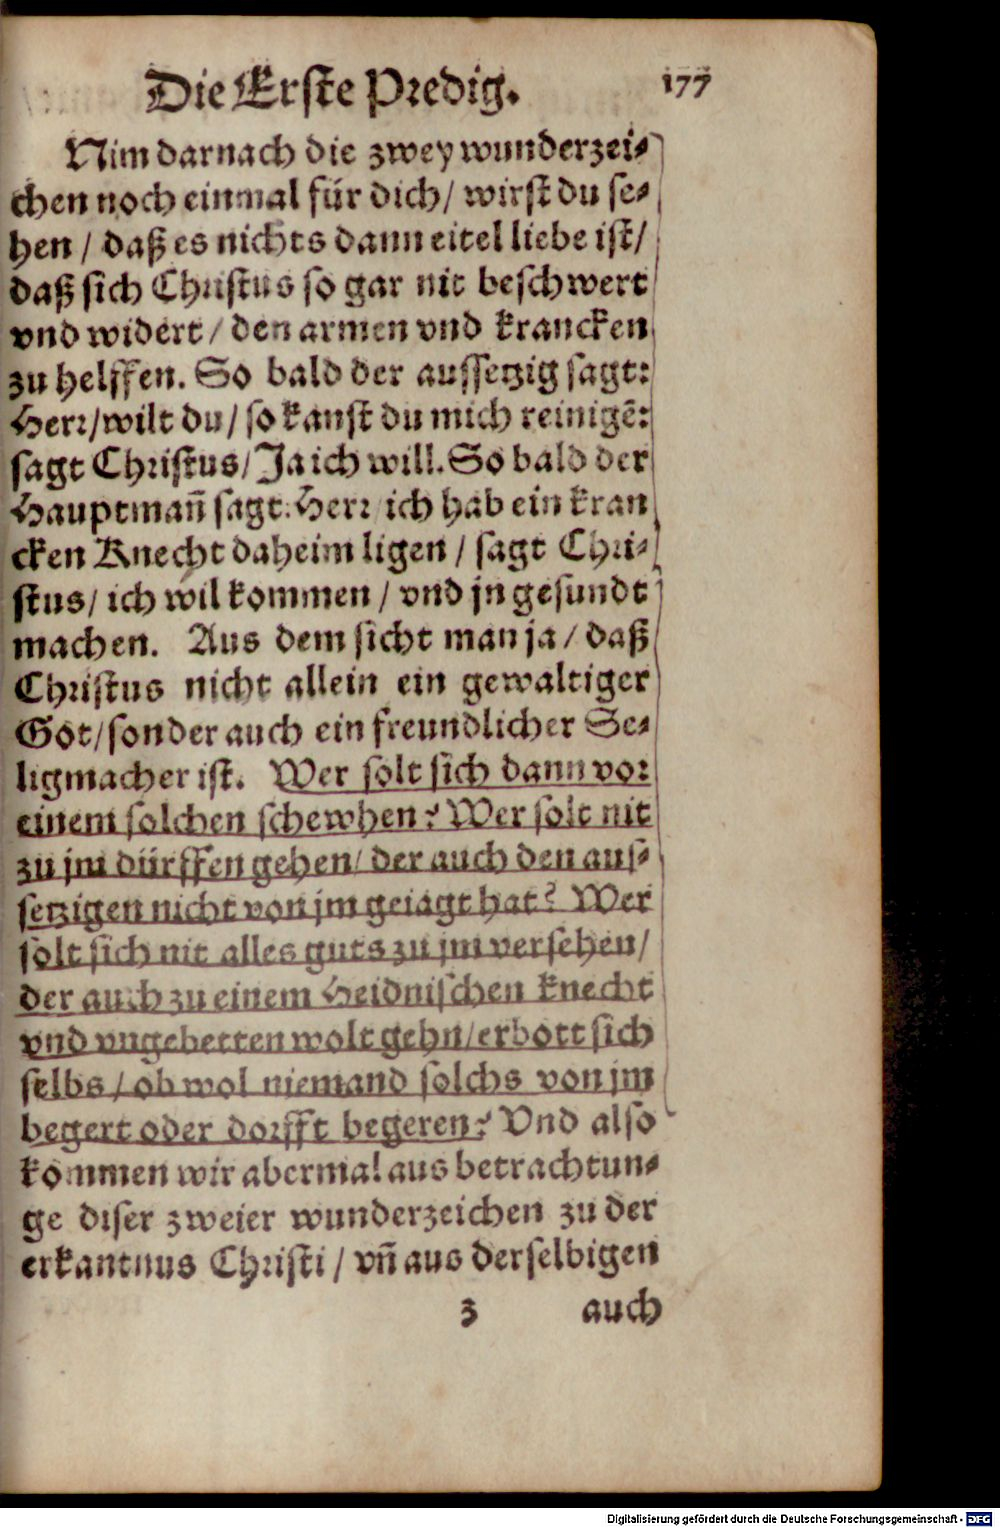 Die Erste Predig. 177
Nim darnach die zwey wunderzei-
chen noch einmal für dich/ wirst du se-
hen / daß es nichts dann eitel liebe ist/
daß sich Christus so gar nit beschwert
vnd widert/ den armen vnd krancken
zu helffen. So bald der aussetzig sagt:
Herr/wilt du/ so kanst du mich reinigē:
sagt Christus/ Ja ich will. So bald der
Hauptmañ sagt: Herr/ich hab ein kran
cken Knecht daheim ligen / sagt Chri-
stus/ ich wil kommen / vnd jn gesundt
machen. Aus dem sicht man ja / daß
Christus nicht allein ein gewaltiger
Got/sonder auch ein freundlicher Se-
ligmacher ist. Wer solt sich dann vor
einem solchen schewhen? Wer solt nit
zu jm dürffen gehen/ der auch den aus-
setzigen nicht von jm geiagt hat? Wer
solt sich nit alles guts zu jm versehen/
der auch zu einem Heidnischen knecht
vnd vngebetten wolt gehn/erbott sich
selbs / ob wol niemand solchs von jm
begert oder dorfft begeren? Vnd also
kommen wir abermal aus betrachtun-
ge diser zweier wunderzeichen zu der
erkantnus Christi / vñ aus derselbigen
z auch
Digitalisierung gefördert durch die Deutsche Forschungsgemeinschaft - DFG